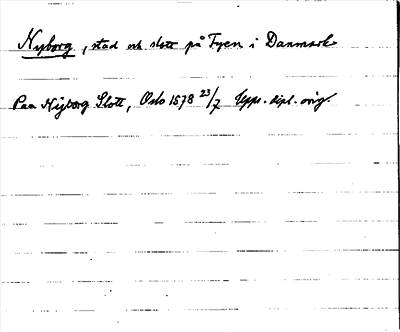 Nyborg, stad och slott på Fyen i Danmark
Paa Nÿborg Slott, Oslo 1578 23/7 Upps. dipl. orig.